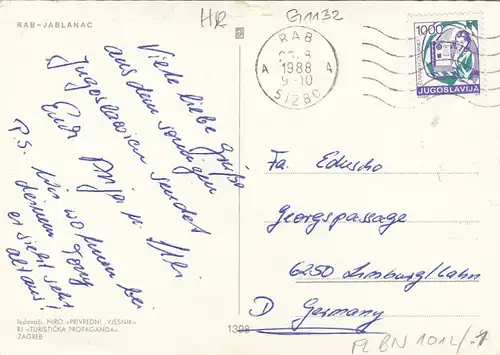 RAB-JABLANAC
HR
G1132
RAB
1988
9-10
A A
51280
1000
JUGOSLAVIJA
Viele liebe Grüße
aus dem sonnigen
Jugoslawien sendet
Euch Anja u. Uli
P.S. Wir wohnen bei
denen
er sieht sehr
alt aus!
Fa. Eduscho
Georgspassage
6250 Limburg/Lahn
D Germany
Izdavači: NIRO »PRIVREDNI VJESNIK«
RJ »TURISTIČKA PROPAGANDA«
ZAGREB
1398
FL BN 1014/-1